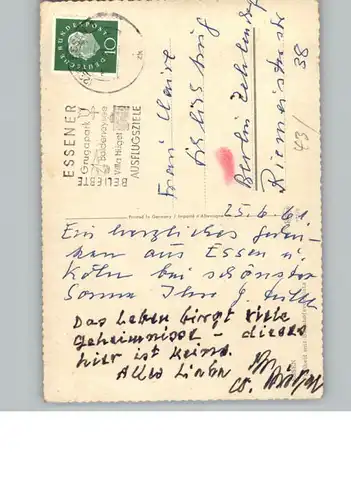 DEUTSCHE BUNDESPOST
10
BELIEBTE ESSENER
AUSFLUGSZIELE
Grugapark
Baldeneysee
Villa Hügel
Frau Claire
Berlin Zehlendorf
Riemeisterstr
43/38
Printed in Germany / Imprimé d'Allemagne
25.6.61.
Ein herzliches Geden-
ken aus Essen u.
Köln bei schönster
Sonne Ihre G.
Das Leben birgt viele
Geheimnisse - dieses
hier ist keins.
Alles Liebe